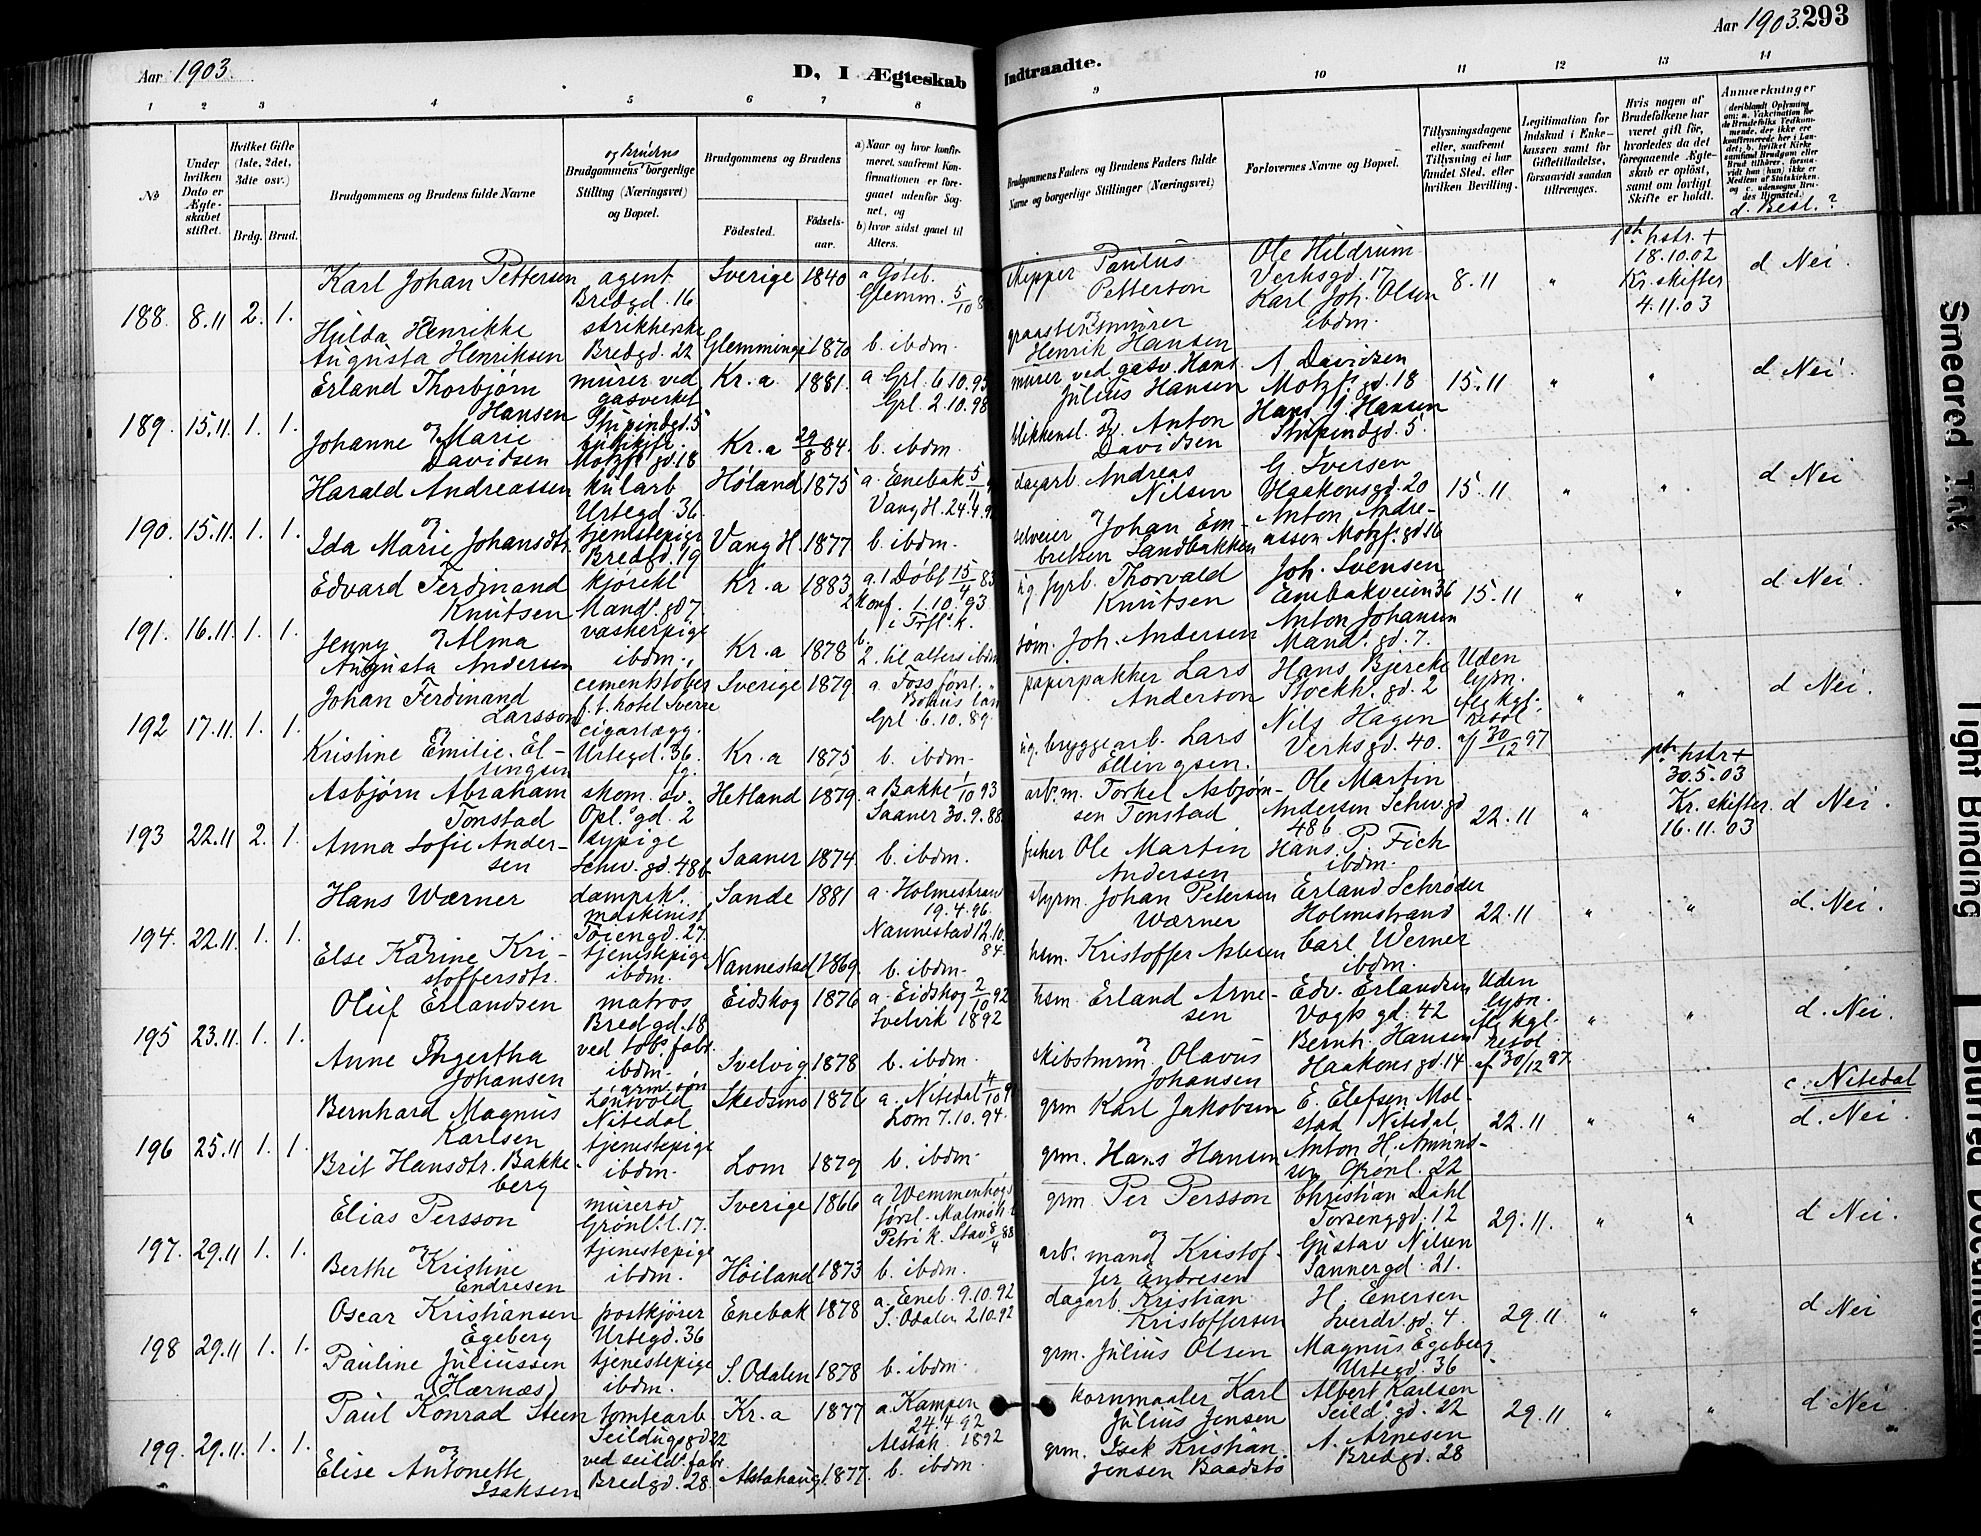 Aar 1903.
D, I Ægteskab
Indtraadte.
Aar 1903.
293
1 2 3 4 5 6 7 8
9 10 11 12 13 14
No
Under hvilken Dato er Ægteskabet stiftet.
Hvilket Gifte (1ste, 2det, 3die osv.)
Brdg. Brud.
Brudgommens og Brudens fulde Navne
og Brudens
Brudgommens borgerlige Stilling (Næringsvei) og Bopæl.
Brudgommens og Brudens
Födested.
Födselsaar.
a) Naar og hvor konfirmeret, saafremt Konfirmationen er foregaaet udenfor Sognet, og
b) hvor sidst gaaet til Alters.
Brudgommens Faders og Brudens Faders fulde Navne og borgerlige Stillinger (Næringsvei)
Forlovernes Navne og Bopæl.
Tillysningsdagene eller, saafremt Tillysning ei har fundet Sted, efter hvilken Bevilling.
Legitimation for Indskud i Enkekassen samt for Giftetilladelse, forsaavidt saadan tiltrænges.
Hvis nogen af Brudefolkene har været gift för, hvorledes da det foregaaende Ægteskab er oplöst, samt om lovligt Skifte er holdt.
Anmærkninger
d. Besl. ?
188. 8.11 2. 1.
Karl Johan Pettersen
agent
Bredgd. 16
Sverige 1840
a Göteb.
Glemm. 5/10
skipper Paulus
Petterson
Ole Hildrum
Verksgd. 17
Karl Joh. Olsen
ibdm.
8.11 "
hstr. +
18.10.02
Kr. skifter
4.11.03
d Nei.
og
Hulda Henrikke
Augusta Henriksen
strikkerske
Bredgd. 22
Glemminge 1870
b. ibdm.
graastensmurer
Henrik Hansen
189. 15.11. 1. 1.
Erland Thorbjørn
Hansen
murer ved
gasverket
Stupindgd. 5
Kr.a 1881.
a Grl. 6.10.95
Grl. 2.10.98
murer ved gasv. Hans
Julius Hansen
A Davidsen
Motzf. gd. 18
Hans J. Hansen
Stupindgd. 5.
15.11 " "
d Nei
og
Johanne Marie
Davidsen
Motzf. gd. 18
Kr.a 29/8 84.
b. ibdm.
blikkensl. Anton
Davidsen
190. 15.11. 1. 1.
Harald Andreassen
kularb
Urtegd. 36.
Høland 1875
a. Enebak 5/
Vang H. 24.4.9
dagarb. Andreas
Nilsen
G. Iversen
Haakonsgd. 20
Anton Andreassen
Motzf. gd 16
15.11 " "
d Nei
og
Ida Marie Johansdtr.
tjenestepige
Bredgd. 19
Vang H. 1877
b. ibdm.
selveier Johan Embretsen
Sandbakken
191. 16.11. 1. 1.
Edvard Ferdinand
Knutsen
Mands. gd 7.
Kr.a 1883
a. 1 Døbt 15/4 83
2 Konf. 1.10.93
i Frls. k.
ug fyrb. Thorvald
Knutsen
Joh. Svensen
Enebakveien 36
Anton Johansen
Mands. gd. 7.
15.11 " "
d Nei.
Jenny og Alma
Augusta Andersen
vaskerpige
ibdm.
Kr.a 1878
b.
2. til alters ibdm
søm. Joh. Andersen
192 17.11. 1. 1.
Johan Ferdinand
Larsson
cementstøber
f. t. hotel Sverre
Sverige 1879
a. Foss førsl.,
Bohus län
Grl. 6.10.89.
papirpakker Lars
Anderson
Hans Bjercke
Stockh. gd. 2
Nils Hagen
Verksgd. 40.
Uden
lysn.
flg kgl.
resol
af 30/12 97
" "
d Nei.
og
Kristine Emilie Ellingsen
cigarlægg.
Urtegd. 36.
Kr.a 1875
b. ibdm.
ug. bryggearb. Lars
Ellingsen.
193 22.11 2. 1.
Asbjørn Abraham
Tonstad
skom. sv.
Opl. gd. 2
Hetland 1879.
a Bakke 1/10 93
Saaner 30.9.88
arb.m. Torkel Asbjørnsen
Tonstad
Ole Martin
Andersen Schw. gd
48b
Hans P. Fich
ibdm.
22.11 "
hstr +
30.5.03
Kr. skifter.
16.11.03
d Nei.
Anna Sofie Andersen
sypige
Schw. gd. 48b
Saaner 1874.
b. ibdm.
fisker Ole Martin
Andersen
194. 22.11. 1. 1.
Hans Wærner
dampsk.
maskinist
Töiengd. 27.
Sande 1881
a. Holmestrand
19.4.96.
Nannestad 12.10
84
styrm. Johan Petersen
Wærner
Erland Schrøder
Holmestrand
Carl Werner
ibdm.
22.11 " "
d. Nei.
og
Else Karine Kristoffersdtr.
tjenestepige
ibdm.
Nannestad 1869.
b. ibdm.
hsm. Kristoffer Aslesen
195 23.11. 1. 1.
Oluf Erlandsen
matros
Bredgd. 18
Eidskog 1876
a. Eidskog 2/10 92
Svelvik 1892
hsm. Erland Arnesen
Edv. Erlandsen
Vogts gd. 42
Bernh. Hansen
Haakons gd. 14
Uden
lysn.
flg kgl.
resol.
af 30/12 97.
" "
d. Nei.
og
Anne Ingertha
Johansen
ved tob. fabr.
ibdm.
Svelvig 1878
b. ibdm.
skibstmrm. Olavus
Johansen
196 25.11 1. 1.
Bernhard Magnus
Karlsen
Nitedal
Skedsmo 1876
a. Nitedal 4/10 9
Lom 7.10.94.
grm Karl Jakobsen
E. Elefsen Molstad
Nitedal
Anton H. Amundsen
Grönl. 22
22.11 " "
c. Nitedal
d. Nei.
Brit Hansdtr. Bakkeberg
tjenestepige
ibdm.
Lom 1879
b. ibdm.
grm. Hans Hansen
197. 29.11 1. 1.
Elias Persson
murersv
Grönl. l. 17.
Sverige 1866
a Wemmenhögs
førsl. Malmøh. l
Petri k. Stav 8/4 88
grm. Per Persson
Christian Dahl
Torsenggd. 12
Gustav Nilsen
Sannergd. 21.
29.11. " "
d Nei.
og
Berthe Kristine
Endresen
tjenestepige
ibdm.
Höiland 1873
b. ibdm.
arb. mand Kristoffer
Endresen
198 29.11 1. 1.
Oscar Kristiansen
Egeberg
postkjører
Urtegd. 36
Enebak 1878
a. Eneb. 9.10.92
S. Odalen 2.10.92
dagarb. Kristian
Kristoffersen
H. Enersen
Sverdr. gd. 4.
Magnus Egeberg
Urtegd. 36
29.11 " "
d Nei
Pauline Juliussen
(Hærnæs)
tjenestepige
ibdm.
S. Odalen 1878
b. ibdm.
grm. Julius Olsen
199. 29.11. 1. 1.
Paul Konrad Steen
tomtearb
Seildugsgd 22
Kr.a 1877
a Kampen
24.4.92
Alstah. 1892
kornmaaler Karl
Julius Jensen
Albert Karlsen
Seild. gd. 22
A. Arnesen
Bredgd. 28
29.11 " "
d Nei
og
Elise Antonette
Isaksen
ved seild. fabr.
Bredgd. 28
Alstahaug 1877.
b. ibdm.
grm. Isak Kristian
Jensen Baadstø
Smeared Ink
Tight Binding
Blurred Document